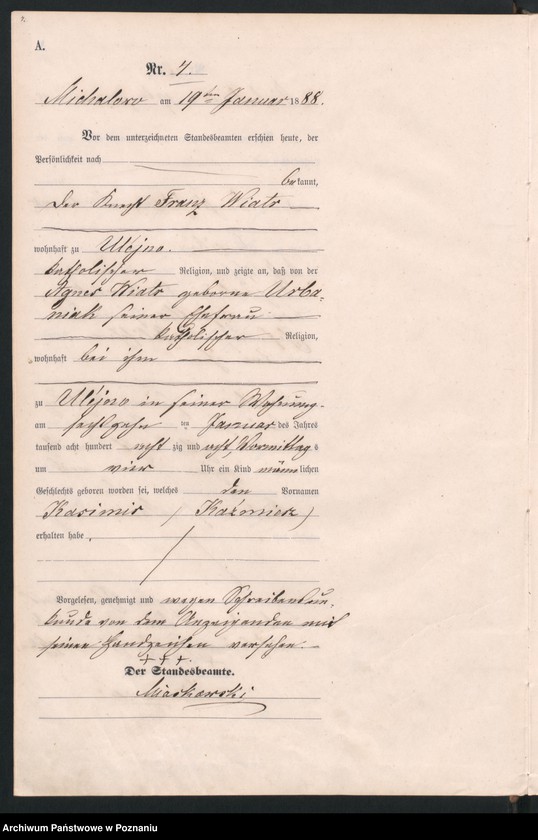 A.
Nr. 4.
Michalowo am 19ten Januar 1888.
Vor dem unterzeichneten Standesbeamten erschien heute, der
Persönlichkeit nach
bekannt,
der Knecht Franz Wiatr
wohnhaft zu Ulejno.
katholischer Religion, und zeigte an, daß von der
Agnes Wiatr geborne Urba-
niak seiner Ehefrau
katholischer Religion,
wohnhaft bei ihm
zu Ulejno in seiner Wohnung
am sechzehn ten Januar des Jahres
tausend acht hundert acht zig und acht, Vormittags
um vier Uhr ein Kind männlichen
Geschlechts geboren worden sei, welches den Vornamen
Kasimir (Kaźmierz)
erhalten habe.
Vorgelesen, genehmigt und wegen Schreibensun-
kunde von dem Anzeigenden mit
seinen Handzeichen versehen.
+ + +.
Der Standesbeamte.
Miaskowski
Archiwum Państwowe w Poznaniu